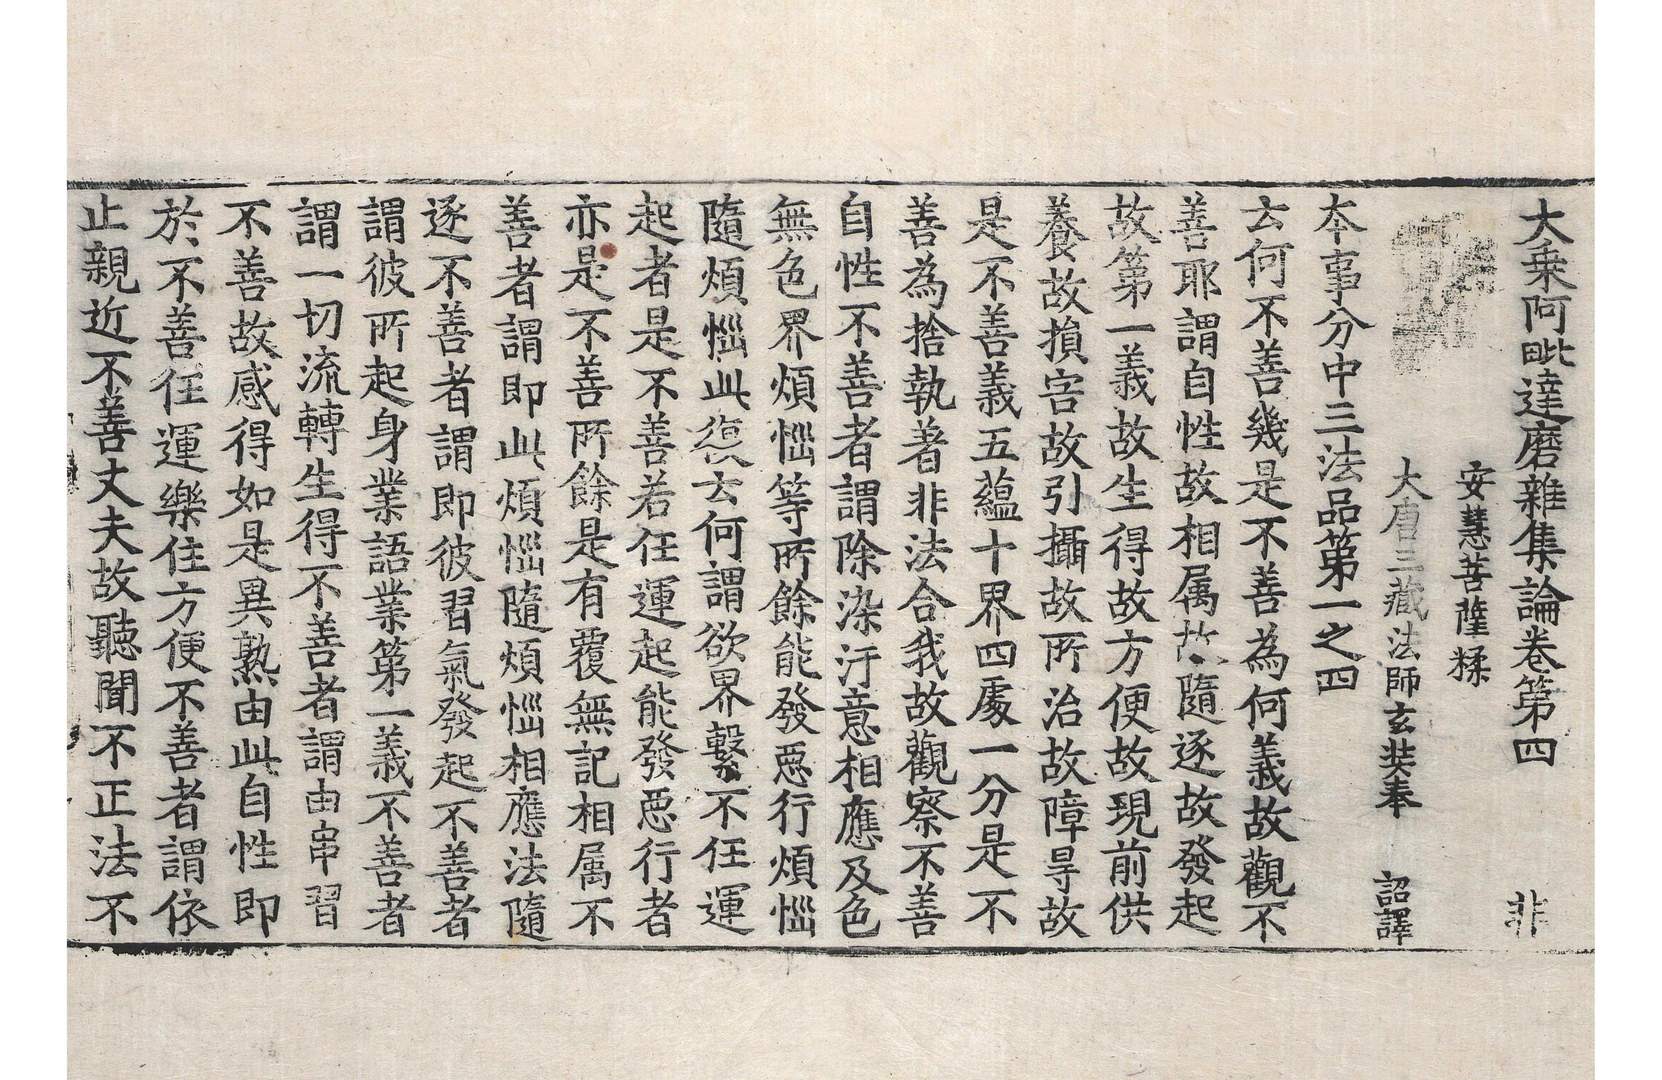 大乗阿毗達磨雜集論卷第四 非
安慧菩薩糅
大唐三藏法師玄奘奉 詔譯
本事分中三法品第一之四
云何不善幾是不善為何義故觀不
善耶謂自性故相属故隨逐故發起
故第一義故生得故方便故現前供
養故損害故引攝故所治故障㝵故
是不善義五蘊十界四處一分是不
善為捨執著非法合我故觀察不善
自性不善者謂除染汙意相應及色
無色界煩惱等所餘能發惡行煩惱
隨煩惱此復云何謂欲界繫不任運
起者是不善若任運起能發惡行者
亦是不善所餘是有覆無記相属不
善者謂即此煩惱隨煩惱相應法隨
逐不善者謂即彼習氣發起不善者
謂彼所起身業語業第一義不善者
謂一切流轉生得不善者謂由串習
不善故感得如是異熟由此自性即
於不善任運樂住方便不善者謂依
止親近不善丈夫故聽聞不正法不